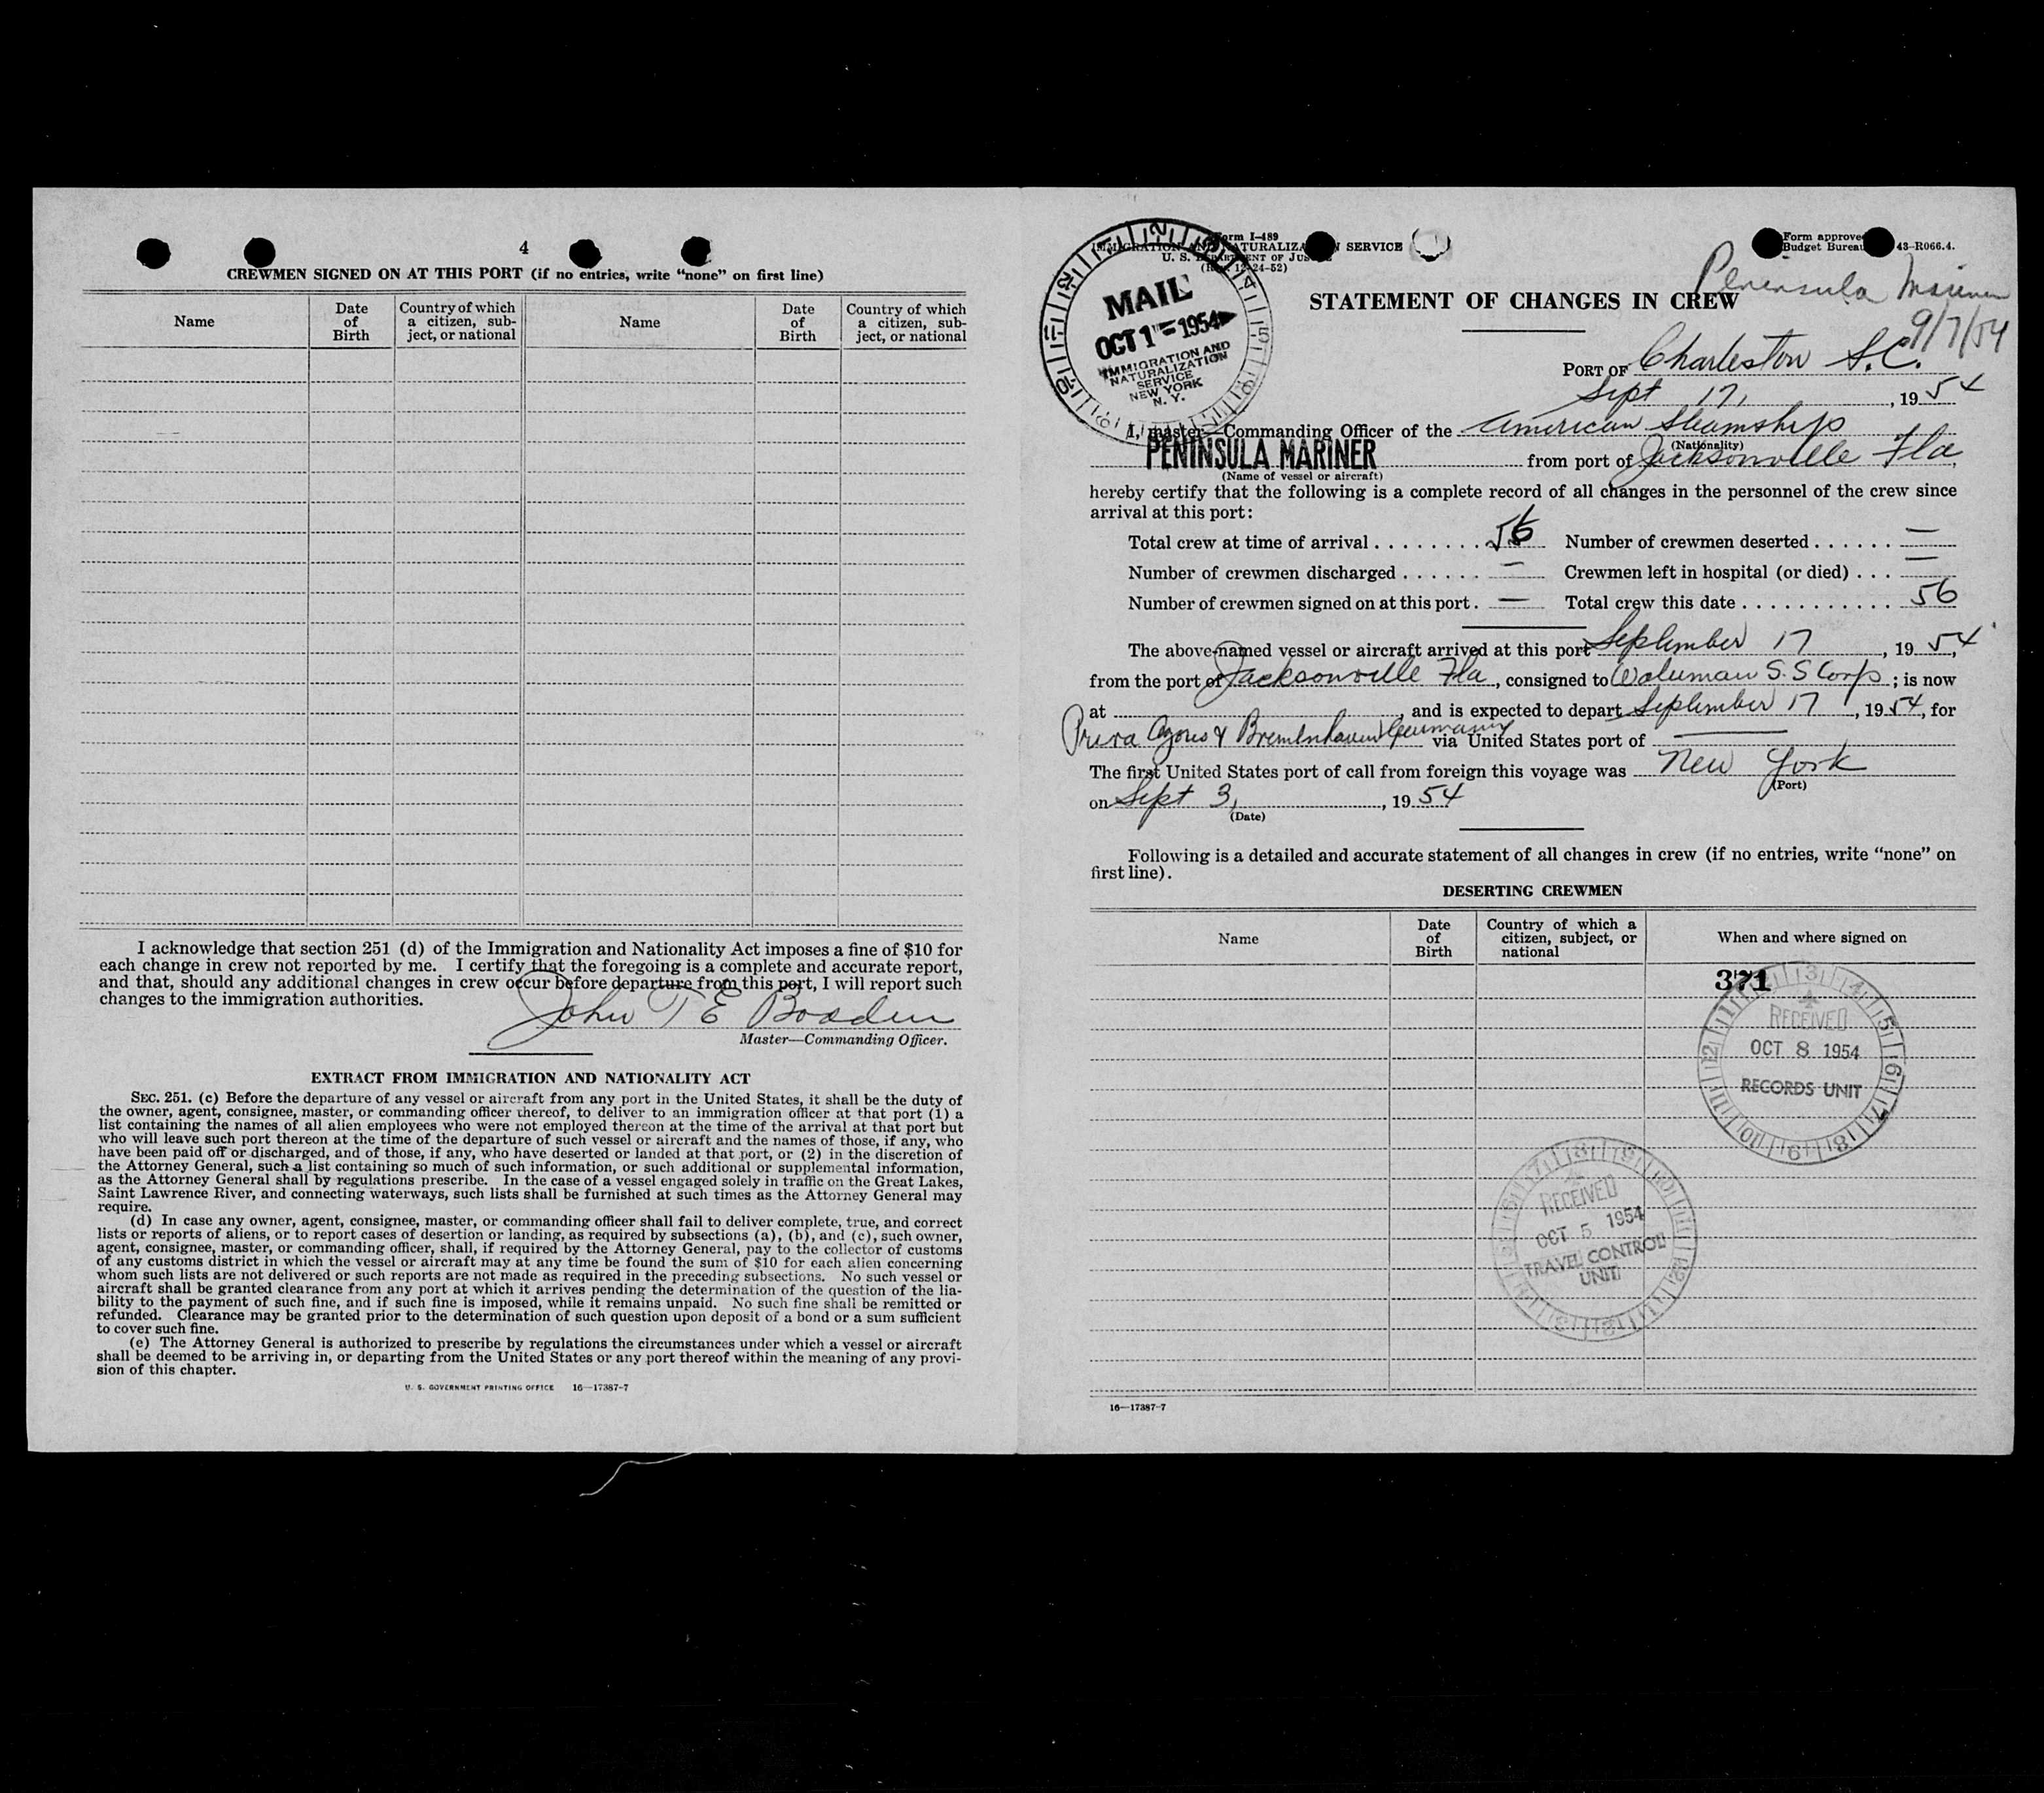 4
CREWMEN SIGNED ON AT THIS PORT (if no entries, write “none” on first line)
Name
Date of Birth
Country of which a citizen, sub-ject, or national
Name
Date of Birth
Country of which a citizen, sub-ject, or national
I acknowledge that section 251 (d) of the Immigration and Nationality Act imposes a fine of $10 for
each change in crew not reported by me. I certify that the foregoing is a complete and accurate report,
and that, should any additional changes in crew occur before departure from this port, I will report such
changes to the immigration authorities.
John T E
Master—Commanding Officer.
EXTRACT FROM IMMIGRATION AND NATIONALITY ACT
SEC. 251. (c) Before the departure of any vessel or aircraft from any port in the United States, it shall be the duty of
the owner, agent, consignee, master, or commanding officer thereof, to deliver to an immigration officer at that port (1) a
list containing the names of all alien employees who were not employed thereon at the time of the arrival at that port but
who will leave such port thereon at the time of the departure of such vessel or aircraft and the names of those, if any, who
have been paid off or discharged, and of those, if any, who have deserted or landed at that port, or (2) in the discretion of
the Attorney General, such a list containing so much of such information, or such additional or supplemental information,
as the Attorney General shall by regulations prescribe. In the case of a vessel engaged solely in traffic on the Great Lakes,
Saint Lawrence River, and connecting waterways, such lists shall be furnished at such times as the Attorney General may
require.
(d) In case any owner, agent, consignee, master, or commanding officer shall fail to deliver complete, true, and correct
lists or reports of aliens, or to report cases of desertion or landing, as required by subsections (a), (b), and (c), such owner,
agent, consignee, master, or commanding officer, shall, if required by the Attorney General, pay to the collector of customs
of any customs district in which the vessel or aircraft may at any time be found the sum of $10 for each alien concerning
whom such lists are not delivered or such reports are not made as required in the preceding subsections. No such vessel or
aircraft shall be granted clearance from any port at which it arrives pending the determination of the question of the lia-
bility to the payment of such fine, and if such fine is imposed, while it remains unpaid. No such fine shall be remitted or
refunded. Clearance may be granted prior to the determination of such question upon deposit of a bond or a sum sufficient
to cover such fine.
(e) The Attorney General is authorized to prescribe by regulations the circumstances under which a vessel or aircraft
shall be deemed to be arriving in, or departing from the United States or any port thereof within the meaning of any provi-
sion of this chapter.
U. S. GOVERNMENT PRINTING OFFICE 16—17387-7
Form I-489
SERVICE
Form approved
Budget Bureau 43-R066.4.
MAIL
OCT 1 - 1954
IMMIGRATION AND
NATURALIZATION
SERVICE
NEW YORK
N. Y.
Peninsula Mariner
9/7/54
STATEMENT OF CHANGES IN CREW
PORT OF Charleston S.C.
Sept 17, , 1954
I, master—Commanding Officer of the American Steamship
(Nationality)
PENINSULA MARINER from port of Jacksonville Fla
(Name of vessel or aircraft)
hereby certify that the following is a complete record of all changes in the personnel of the crew since
arrival at this port:
Total crew at time of arrival . . . . . . . . 56 Number of crewmen deserted . . . . . . —
Number of crewmen discharged . . . . . . — Crewmen left in hospital (or died) . . . —
Number of crewmen signed on at this port . — Total crew this date . . . . . . . . . . . . 56
The above-named vessel or aircraft arrived at this port September 17 , 1954,
from the port of Jacksonville Fla , consigned to S.S Corp ; is now
at , and is expected to depart September 17 , 1954, for
Azores & Germany via United States port of —
The first United States port of call from foreign this voyage was New York
(Port)
on Sept 3, , 1954
(Date)
Following is a detailed and accurate statement of all changes in crew (if no entries, write “none” on
first line).
DESERTING CREWMEN
Name
Date of Birth
Country of which a citizen, subject, or national
When and where signed on
371
RECEIVED
OCT 8 1954
RECORDS UNIT
RECEIVED
OCT 5 1954
TRAVEL CONTROL
UNIT
16—17387-7